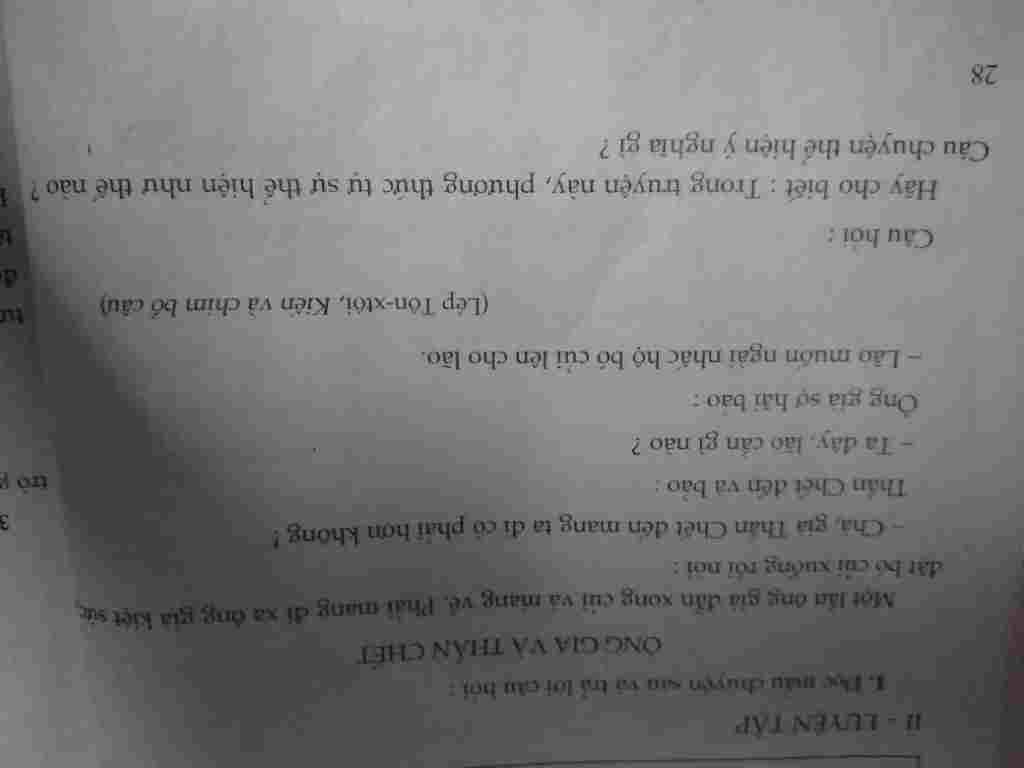 II - LUYỆN TẬP
1. Đọc mẩu chuyện sau và trả lời câu hỏi :
ÔNG GIÀ VÀ THẦN CHẾT
Một lần ông già đẵn xong củi và mang về. Phải mang đi xa ông già kiệt sức,
đặt bó củi xuống rồi nói :
– Chà, giá Thần Chết đến mang ta đi có phải hơn không !
Thần Chết đến và bảo :
– Ta đây, lão cần gì nào ?
Ông già sợ hãi bảo :
– Lão muốn ngài nhấc hộ bó củi lên cho lão.
(Lép Tôn-xtôi, Kiến và chim bồ câu)
Câu hỏi :
Hãy cho biết : Trong truyện này, phương thức tự sự thể hiện như thế nào ?
Câu chuyện thể hiện ý nghĩa gì ?
28
3
trò